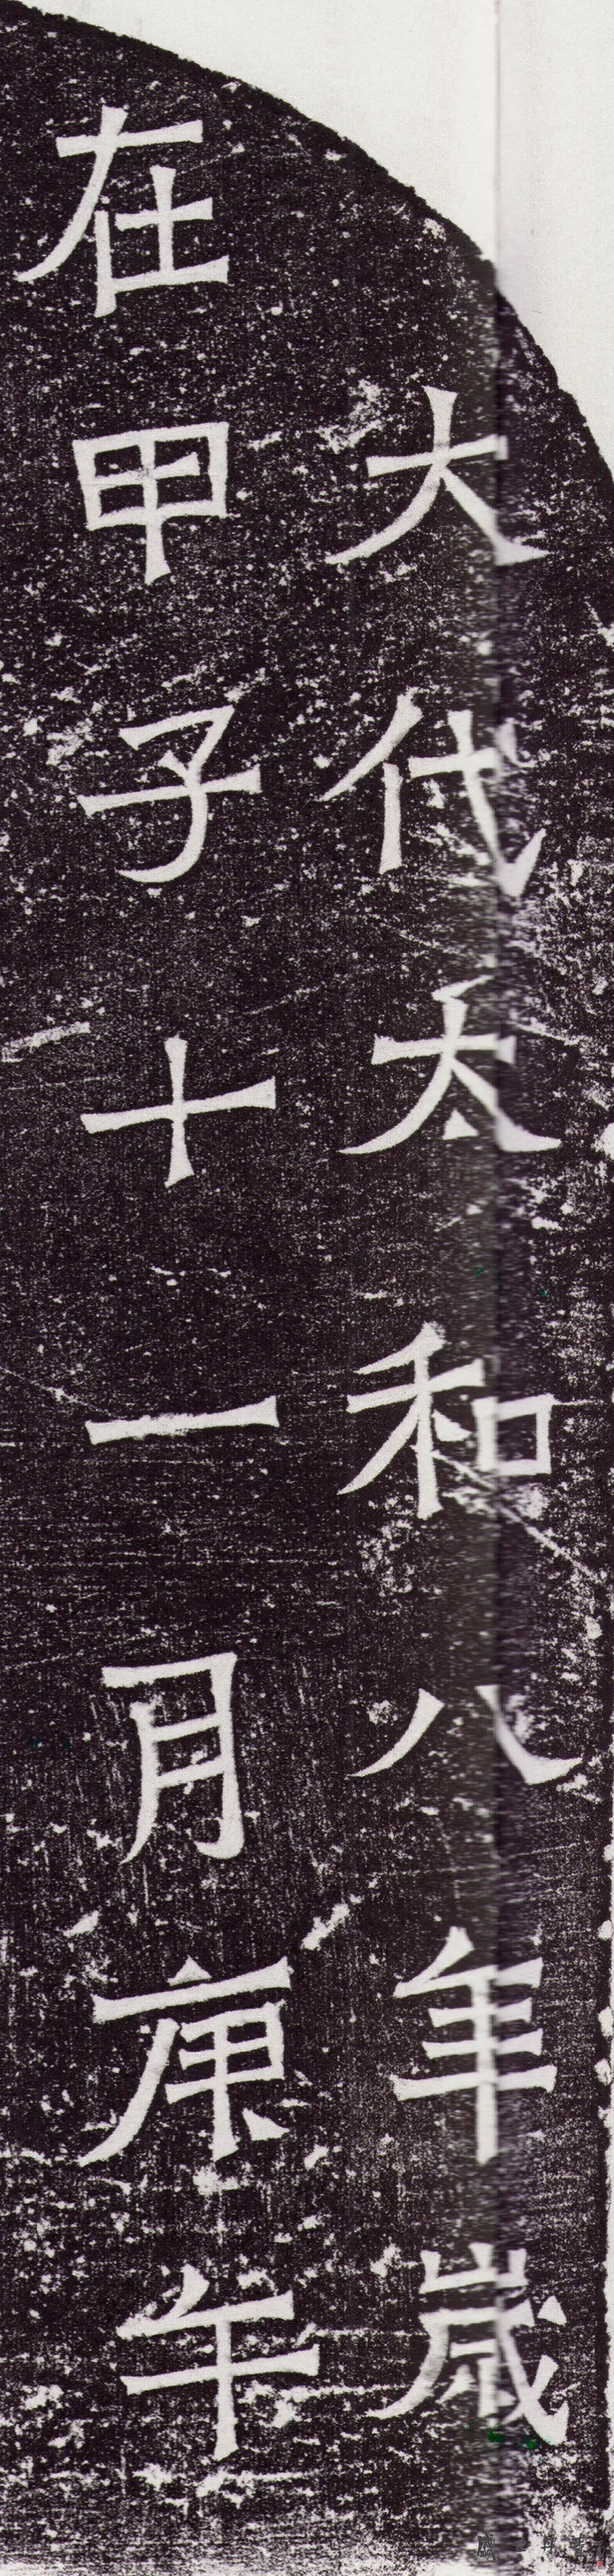 大代太和八年歲
在甲子十一月庚午